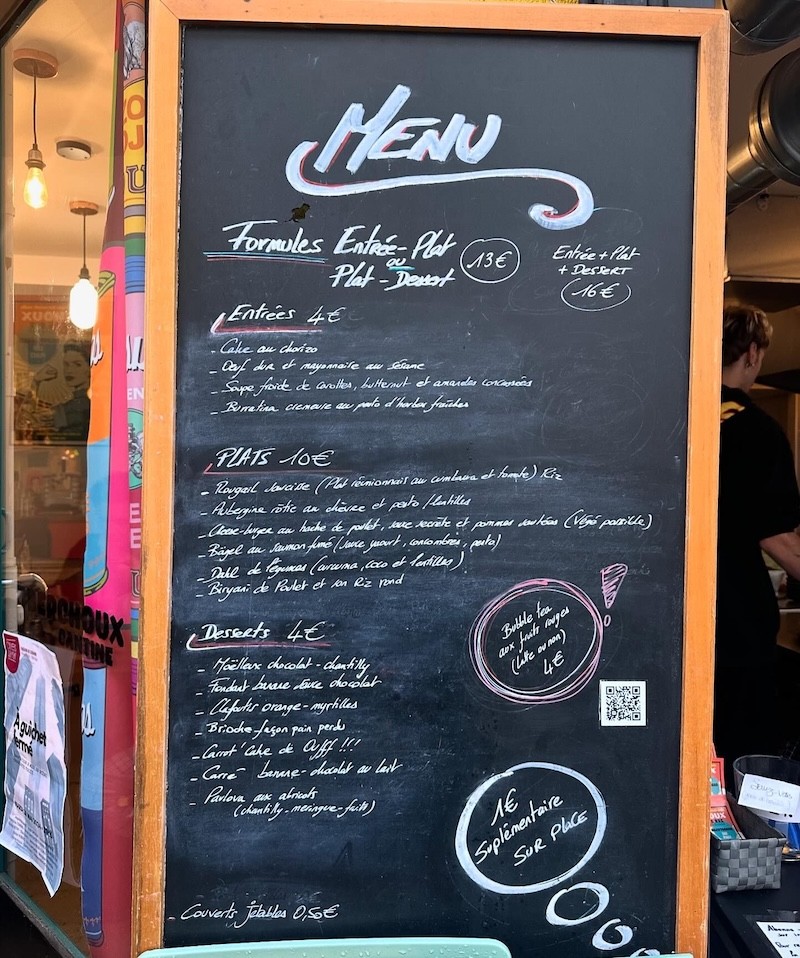 MENU
Formules Entrée-Plat 13€
ou
Plat-Dessert
Entrée+Plat
+ Dessert
16€
Entrées 4€
- Cake au chorizo
- Oeuf dur et mayonnaise au sésame
- Soupe froide de carottes, butternut et amandes concassées
- Burratina cremeuse au pesto d'herbes fraîches
PLATS 10€
- Rougail saucisse (Plat réunionnais au cumbava et tomate) Riz
- Aubergine rôtie au chèvre et pesto /lentilles
- Cheese-burger au haché de poulet, sauce secrète et pommes sautées (Végé possible)
- Bagel au saumon fumé (sauce yaourt, concombres, pesto)
- Dahl de légumes (curcuma, coco et lentilles)
- Biryani de Poulet et son Riz rond
Desserts 4€
- Moëlleux chocolat-chantilly
- Fondant banane sauce chocolat
- Clafoutis orange-myrtilles
- Brioche façon pain perdu
- Carrot' Cake de Ouff !!!
- Carré banane-chocolat au lait
- Pavlova aux abricots
(chantilly-meringue-fruits)
Bubble tea
aux fruits rouges
(Latte ou non)
4€
1€
Suplémentaire
SUR PLACE
- Couverts jetables 0,50€
ERCHOUX
CANTINE
À guichet
fermé